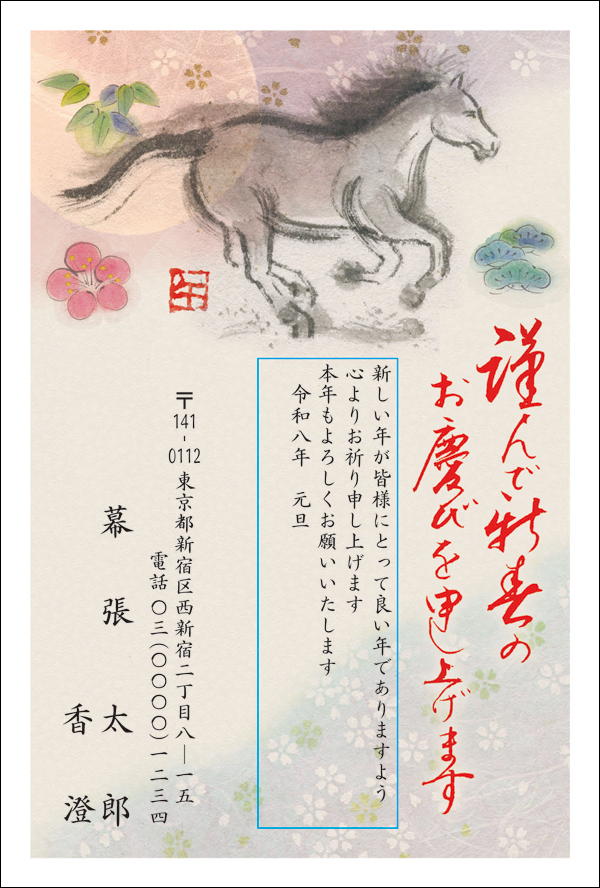 謹んで新春の
お慶びを申し上げます
新しい年が皆様にとって良い年でありますよう
心よりお祈り申し上げます
本年もよろしくお願いいたします
令和八年 元旦
〒141-0112 東京都新宿区西新宿二丁目八―一五
電話 〇三(〇〇〇〇)一二三四
幕張 太郎
香澄